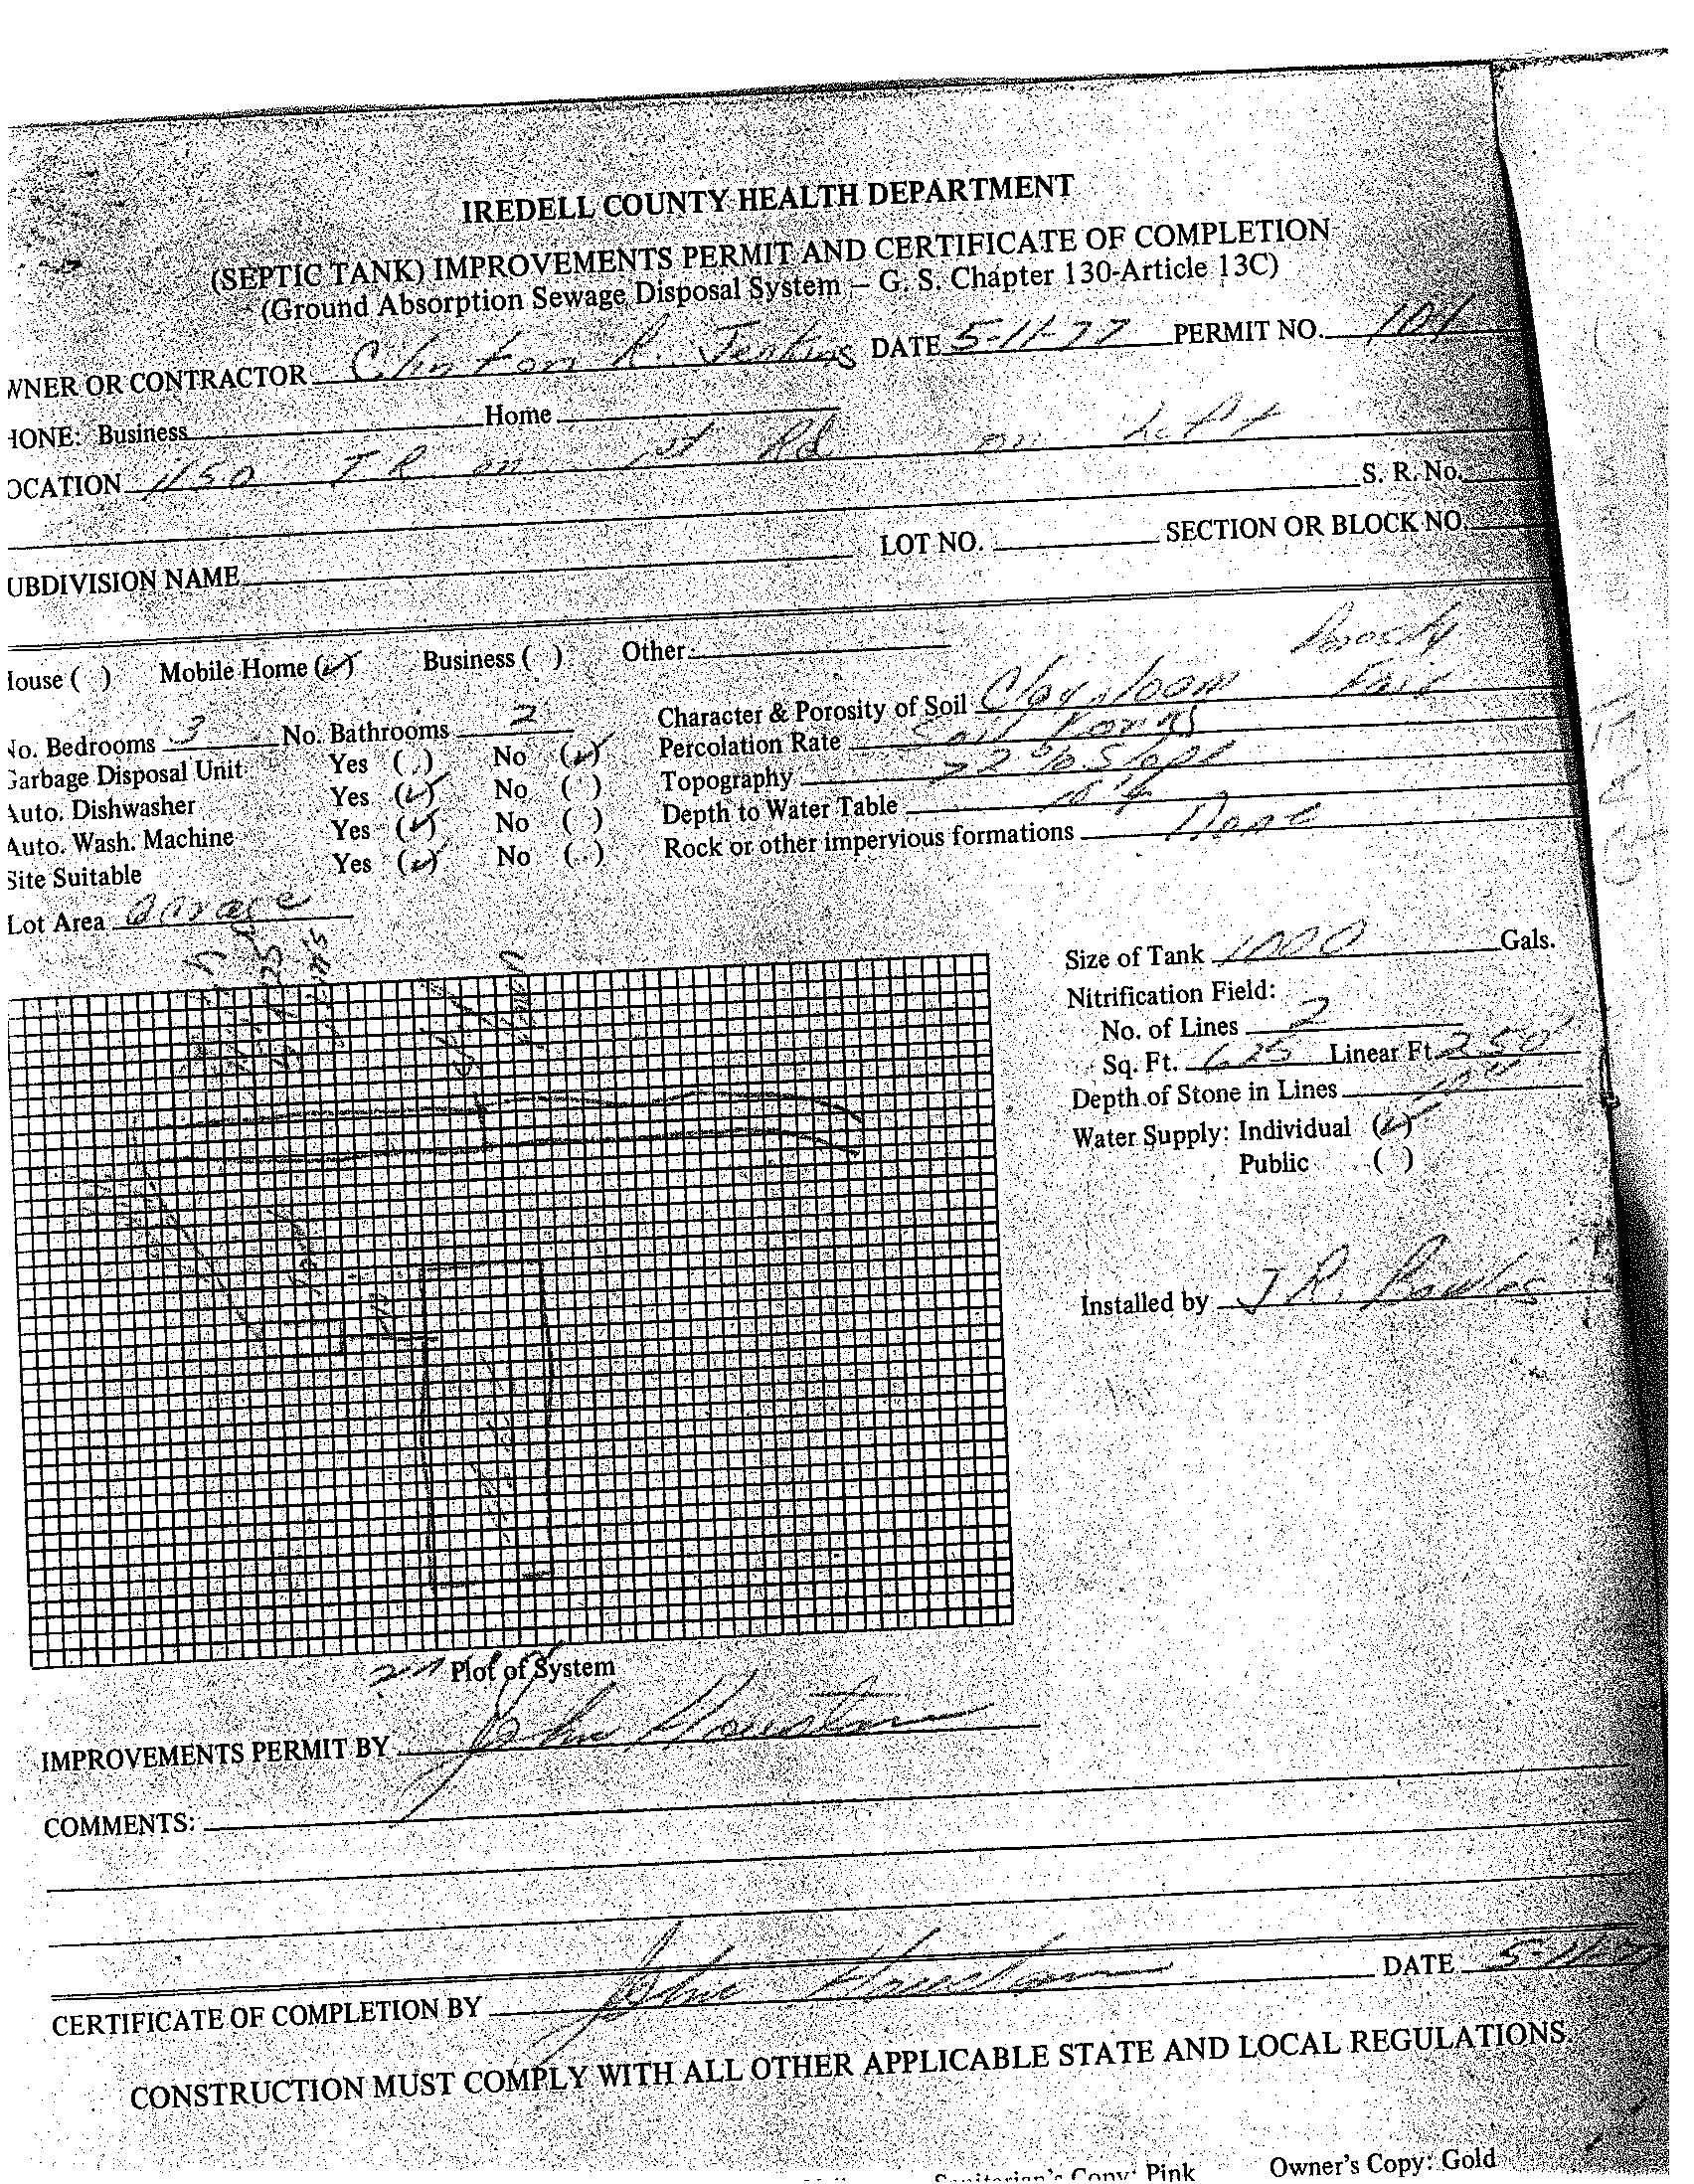 IREDELL COUNTY HEALTH DEPARTMENT
(SEPTIC TANK) IMPROVEMENTS PERMIT AND CERTIFICATE OF COMPLETION
(Ground Absorption Sewage Disposal System – G. S. Chapter 130-Article 13C)
WNER OR CONTRACTOR Clinton R. Jenkins DATE 5-11-77 PERMIT NO. 101
HONE: Business Home
OCATION 1150 T R on 1st Rd on Left
S. R. No.
UBDIVISION NAME LOT NO. SECTION OR BLOCK NO.
House ( ) Mobile Home (✓) Business ( ) Other
No. Bedrooms 3 No. Bathrooms 2 Character & Porosity of Soil Clay loam Fair
Garbage Disposal Unit Yes ( ) No (✓) Percolation Rate
Auto. Dishwasher Yes (✓) No ( ) Topography 22 % Slope
Auto. Wash. Machine Yes (✓) No ( ) Depth to Water Table
Site Suitable Yes (✓) No ( ) Rock or other impervious formations None
Lot Area
Size of Tank 1000 Gals.
Nitrification Field:
No. of Lines 2
Sq. Ft. 625 Linear Ft. 250'
Depth of Stone in Lines
Water Supply: Individual (✓)
Public ( )
Installed by J R.
Plot of System
IMPROVEMENTS PERMIT BY John Houston
COMMENTS:
CERTIFICATE OF COMPLETION BY John Houston DATE 5-11-7
CONSTRUCTION MUST COMPLY WITH ALL OTHER APPLICABLE STATE AND LOCAL REGULATIONS.
Sanitarian's Copy: Pink Owner's Copy: Gold